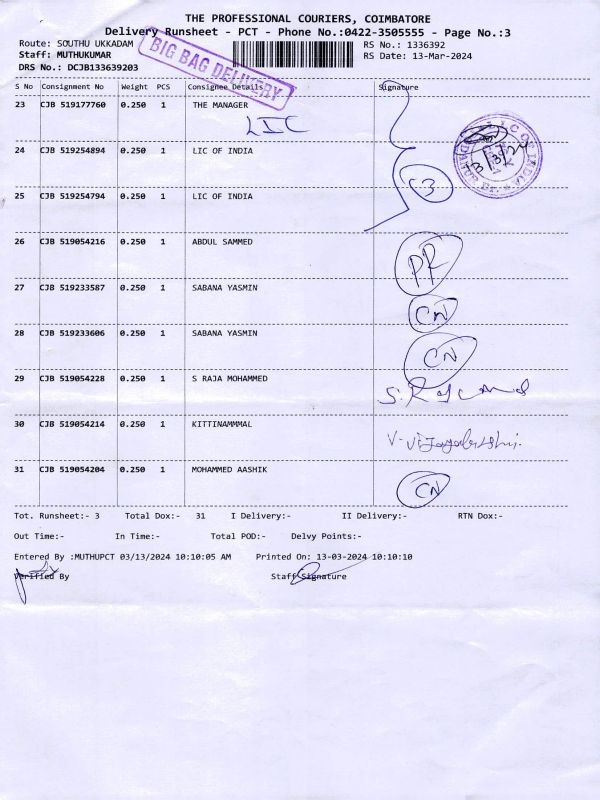 THE PROFESSIONAL COURIERS, COIMBATORE
Delivery Runsheet - PCT - Phone No.:0422-3505555 - Page No.:3
Route: SOUTHU UKKADAM RS No.: 1336392
Staff: MUTHUKUMAR RS Date: 13-Mar-2024
DRS No.: DCJB133639203
BIG BAG DELIVERY
S No Consignment No Weight PCS Consignee Details Signature
23 CJB 519177760 0.250 1 THE MANAGER
LIC
24 CJB 519254894 0.250 1 LIC OF INDIA
LIC OF INDIA
13/3/24
25 CJB 519254794 0.250 1 LIC OF INDIA
C3
26 CJB 519054216 0.250 1 ABDUL SAMMED PR
27 CJB 519233587 0.250 1 SABANA YASMIN CN
28 CJB 519233606 0.250 1 SABANA YASMIN CN
29 CJB 519054228 0.250 1 S RAJA MOHAMMED
30 CJB 519054214 0.250 1 KITTINAMMMAL
31 CJB 519054204 0.250 1 MOHAMMED AASHIK CN
Tot. Runsheet:- 3 Total Dox:- 31 I Delivery:- II Delivery:- RTN Dox:-
Out Time:- In Time:- Total POD:- Delvy Points:-
Entered By :MUTHUPCT 03/13/2024 10:10:05 AM Printed On: 13-03-2024 10:10:10
Verified By Staff Signature